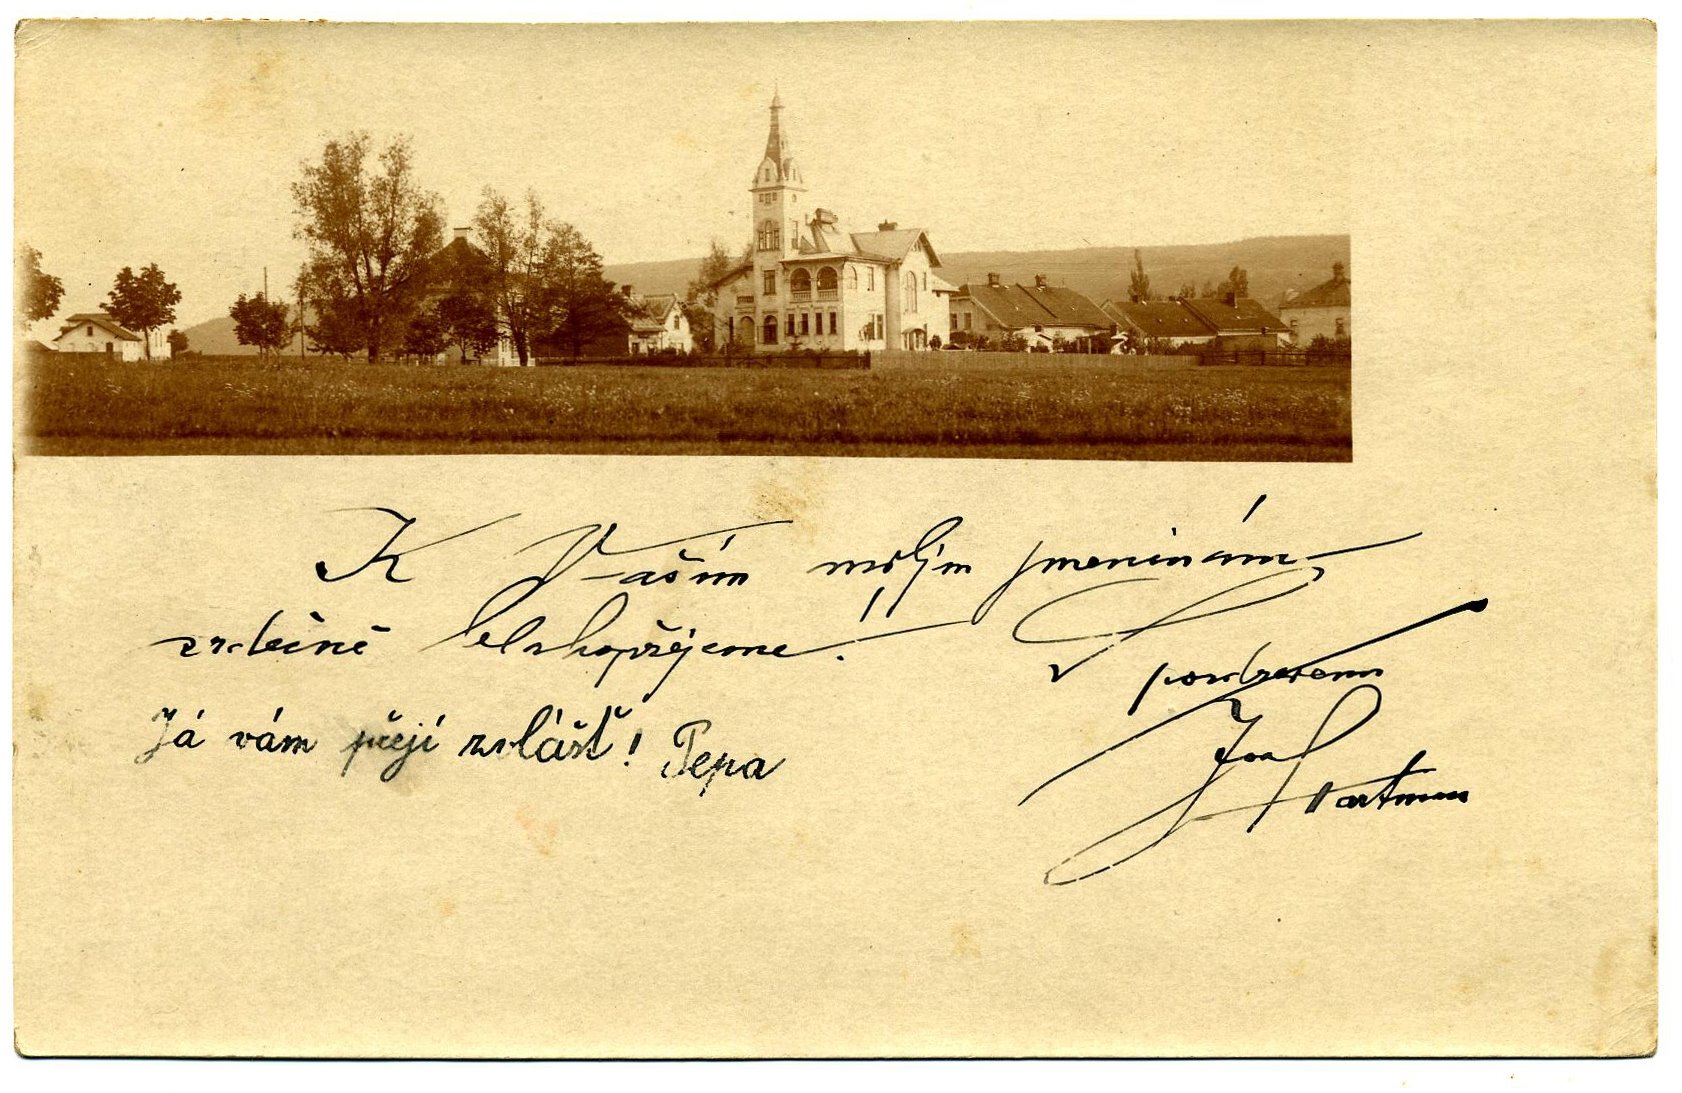 K Vašim milým jmeninám
srdečně blahopřejeme!
S pozdravem
Já vám přeji zvlášť! Pepa
Jos Hartman